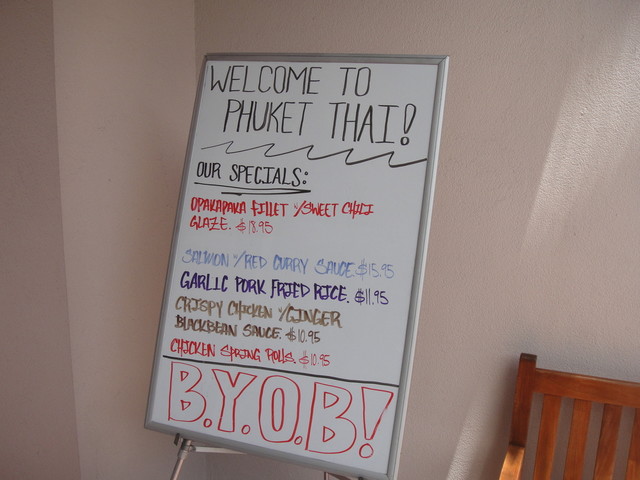 WELCOME TO
PHUKET THAI!
OUR SPECIALS:
OPAKAPAKA FILLET W/SWEET CHILI
GLAZE. $18.95
SALMON W/RED CURRY SAUCE $15.95
GARLIC PORK FRIED RICE. $11.95
CRISPY CHICKEN W/GINGER
BLACKBEAN SAUCE. $10.95
CHICKEN SPRING ROLLS. $10.95
B.Y.O.B!